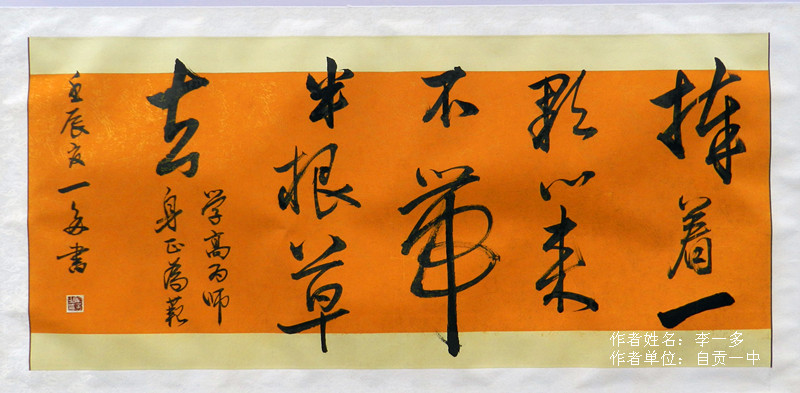 捧着一
颗心来
不带
半根草
去
学高为师
身正為範
壬辰夏一多書
作者姓名：李一多
作者单位：自贡一中